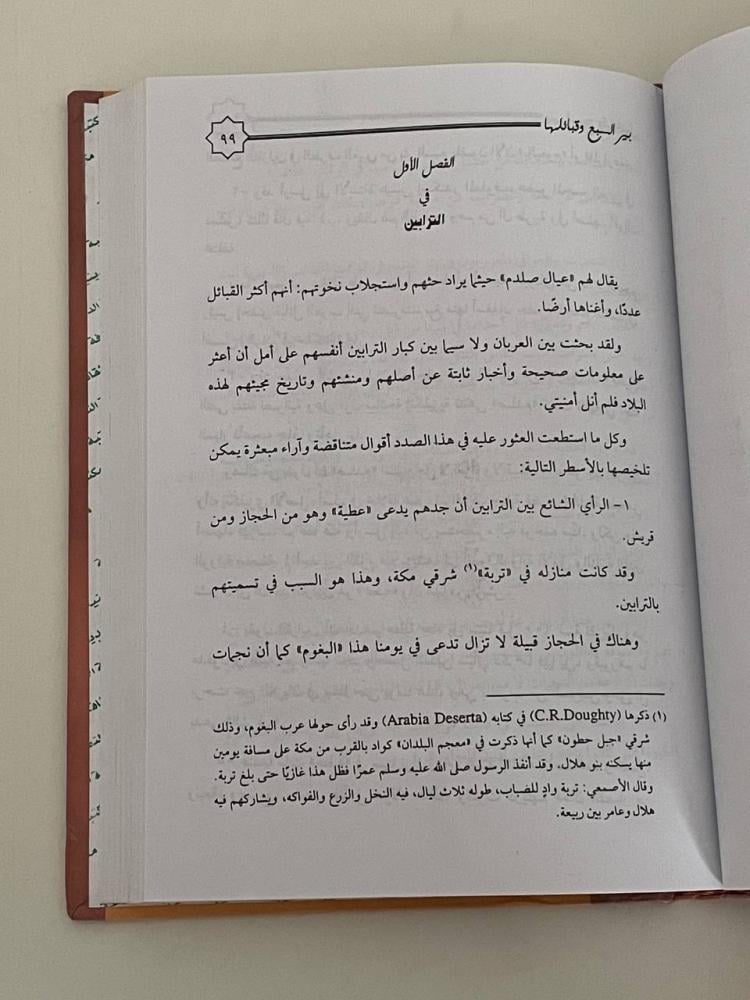 بير السبع وقبائلها
٩٩
الفصل الأول
في
الترابين
يقال لهم «عيال صلدم» حيثما يراد حثهم واستجلاب نخوتهم: أنهم أكثر القبائل
عددًا، وأغناها أرضًا.
ولقد بحثت بين العربان ولا سيما بين كبار الترابين أنفسهم على أمل أن أعثر
على معلومات صحيحة وأخبار ثابتة عن أصلهم ومنشئهم وتاريخ مجيئهم لهذه
البلاد فلم أنل أمنيتي.
وكل ما استطعت العثور عليه في هذا الصدد أقوال متناقضة وآراء مبعثرة يمكن
تلخيصها بالأسطر التالية:
١- الرأي الشائع بين الترابين أن جدهم يدعى «عطية» وهو من الحجاز ومن
قريش.
وقد كانت منازله في «تربة»(١) شرقي مكة، وهذا هو السبب في تسميتهم
بالترابين.
وهناك في الحجاز قبيلة لا تزال تدعى في يومنا هذا «البغوم» كما أن نجمات
(١) ذكرها (C.R.Doughty) في كتابه (Arabia Deserta) وقد رأى حولها عرب البغوم، وذلك
شرقي «جبل حطون» كما أنها ذكرت في «معجم البلدان» كواد بالقرب من مكة على مسافة يومين
منها يسكنه بنو هلال، وقد أنفذ الرسول صلى الله عليه وسلم عمرًا فظل هذا غازيًا حتى بلغ تربة.
وقال الأصمعي: تربة وادٍ للضباب، طوله ثلاث ليال، فيه النخل والزرع والفواكه، ويشاركهم فيه
هلال وعامر بين ربيعة.